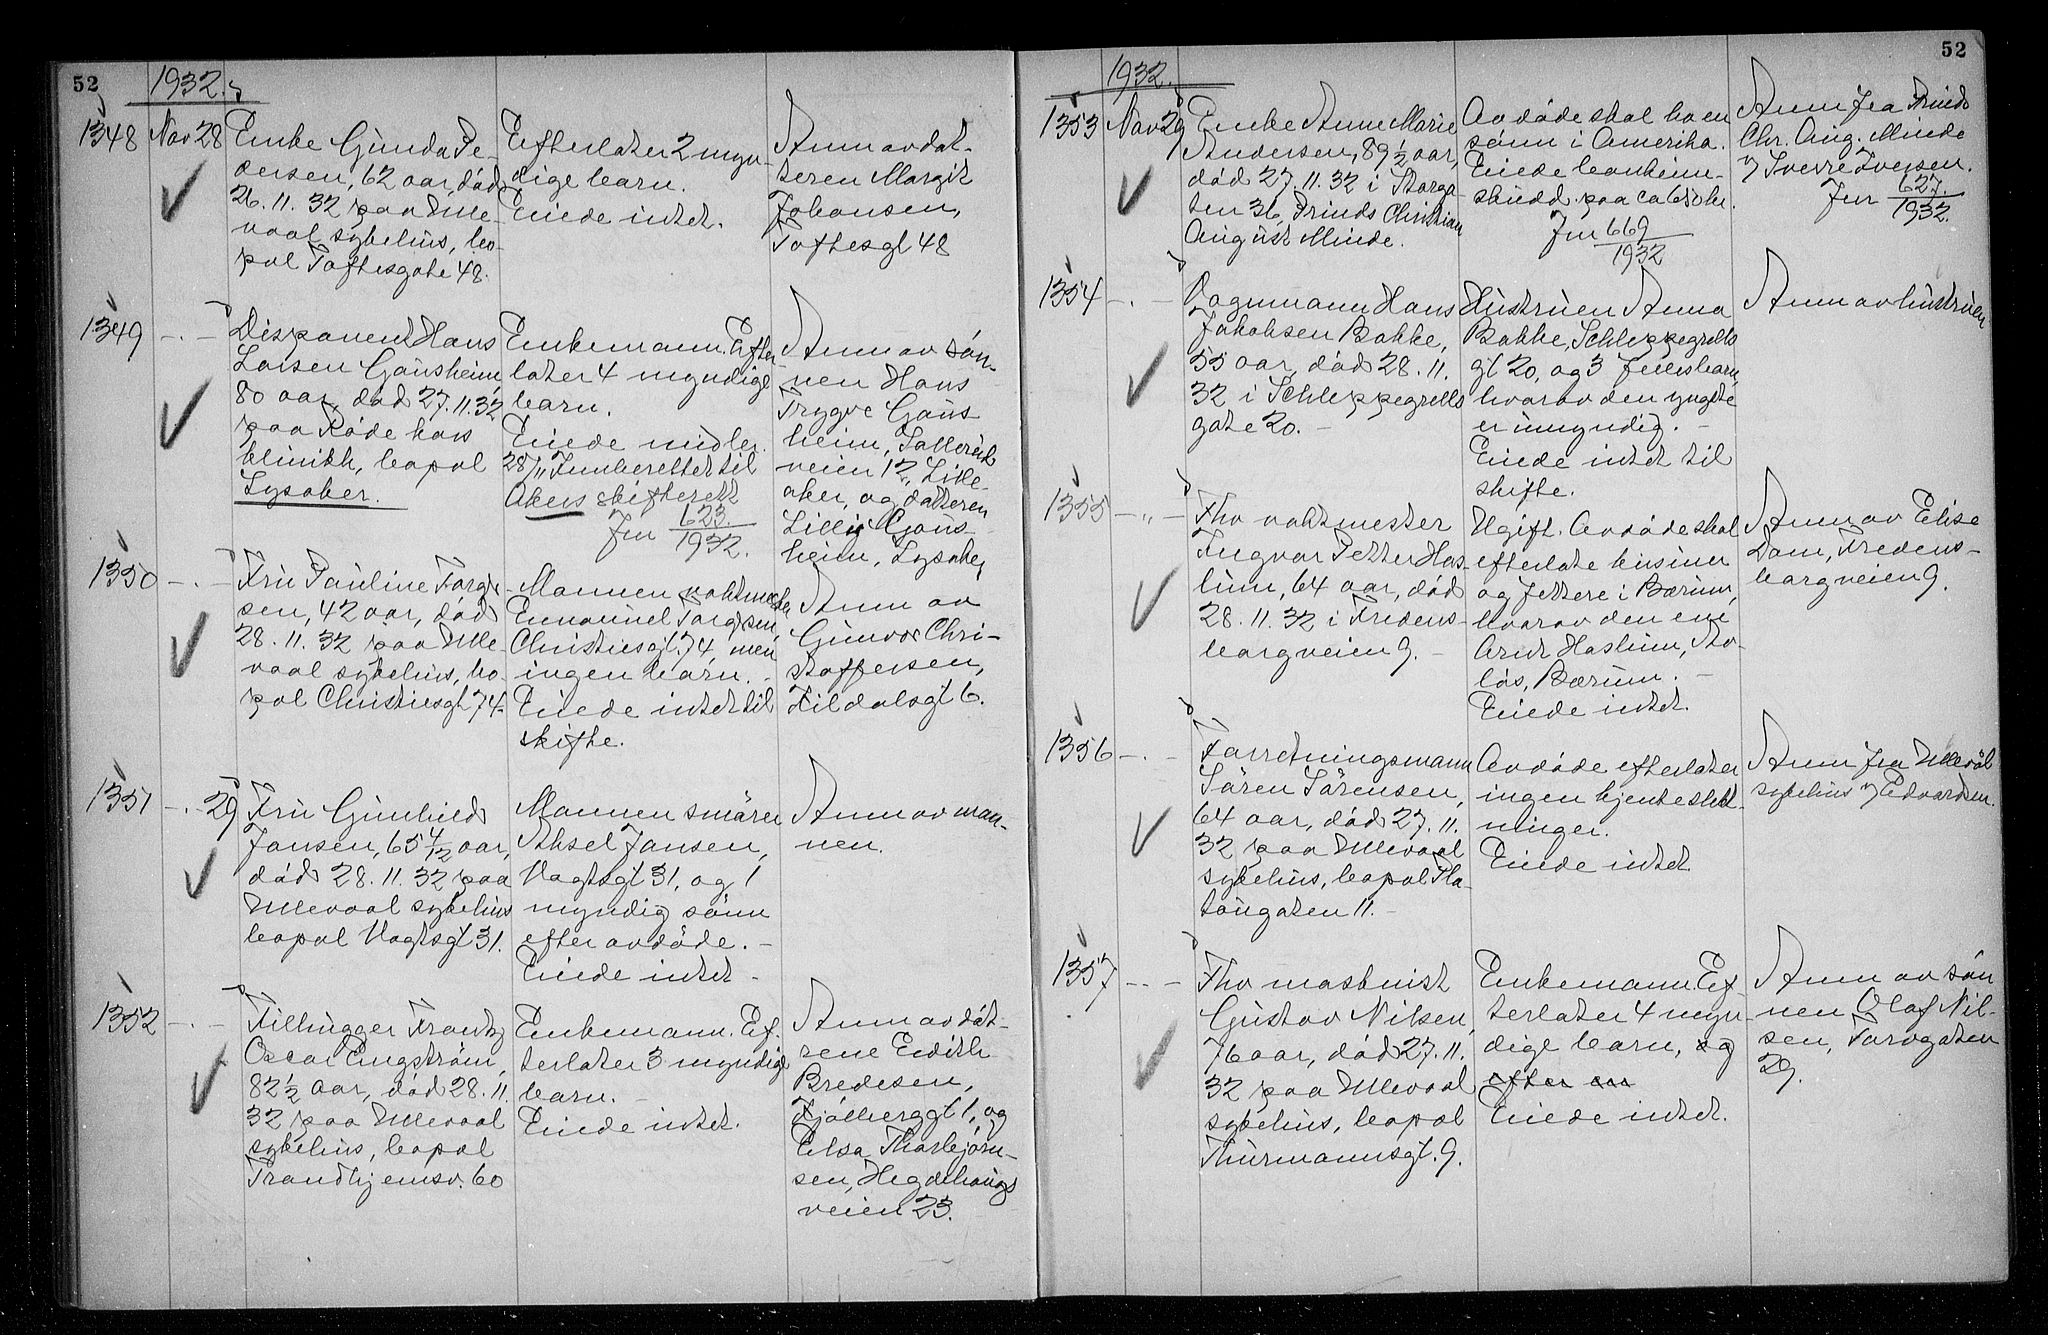 52
1932.
1348 Nov 28
Enke Gunda Pe-
dersen, 62 aar, död
26.11.32 paa Ulle-
vaal sykehus, bo-
pæl Toftesgate 48.
Efterlater 2 myn-
dige barn.
Eiede intet.
Anm av dat-
teren Margit
Johansen,
Toftesgt 48
1349 -.-
Disponent Hans
Larsen Gausheim
80 aar, död 27.11.32
paa Röde kors
klinikk, bopæl
Lysaker.
Enkemann. Efter-
later 4 myndige
barn.
Eiede midler.
28/11 Innberettet til
Akers skifterett
Jnr 623.
1932.
Anm av sön-
nen Hans
Trygve Gaus-
heim,
veien 12, Lille-
aker, og datteren
Lilly Gaus-
heim, Lysaker
1350 -.-
Fru Pauline Torgr-
sen, 42 aar, död
28.11.32 paa Ulle-
vaal sykehus, bo-
pæl Christiesgt 74.
Mannen vaktmester
Emanuel Torgrsen,
Christiesgt. 74 men
ingen barn.
Eiede intet til
skifte.
Anm av
Gunvor Chri-
stoffersen,
Fildalsgt 6.
1351 -.- 29
Fru Gunhild
Jansen, 65 4/12 aar,
död 28.11.32 paa
Ullevaal sykehus
bopæl Vogtsgt 31.
Mannen smörer
Aksel Jansen,
Vogtsgt 31, og 1
myndig sönn
efter avdöde. -
Eiede intet -
Anm av man-
nen.
1352 -.-
Filhugger Frantz
Oscar Engström,
82 1/2 aar, död 28.11.
32 paa Ullevaal
sykehus, bopæl
Trondhjemsv. 60
Enkemann. Ef-
terlater 3 myndige
barn. -
Eiede intet.
Anm av döt-
rene Edith
Bredesen,
Kjölberggt 1, og
Elsa Thorbjörn-
sen, Hegdehaugs
veien 23.
52
1932.
1353 Nov 29
Enke Anne Marie
Andersen, 89 1/2 aar,
död 27.11.32 i Storga-
ten 36, Prinds Christian
August Minde.
Avdöde skal ha en
sönn i Amerika.
Eiede bankinn-
skudd paa ca 650 kr.
Jnr 669
1932
Anm fra Prinds
Chr. Aug. Minde
v/ Sverre Iversen.
Jnr 627.
1932.
1354 -.-
Vognmann Hans
Jakobsen Bakke,
55 aar, död 28.11.
32 i Schleppegrells
gate 20. -
Hustruen Anna
Bakke, Schleppegrells
gt 20, og 3 fellesbarn,
hvorav den yngste
er umyndig. -
Eiede intet til
skifte.
Anm av hustruen
1355 -"-
Fhv vaktmester
Ingvar Petter Has-
lum, 64 aar, död
28.11.32 i Fredens-
borgveien 9. -
Ugift. Avdöde skal
efterlate kusiner
og fettere i Bærum,
hvorav den ene
Arnt Haslum, Sto-
lös, Bærum. -
Eiede intet.
Anm av Elise
Dam, Fredens-
borgveien 9.
1356 -.-
Forretningsmann
Sören Sörensen,
64 aar, död 27.11.
32 paa Ullevaal
sykehus, bopæl Pla-
tougaten 11. -
Avdöde efterlater
ingen kjente slekt-
ninger.
Eiede intet.
Anm fra Ullevål
sykehus v/ Edvardsen.
1357 -.-
Fhv maskinist
Gustav Nilsen,
76 aar, död 27.11.
32 paa Ullevaal
sykehus, bopæl
Thurmannsgt. 9.
Enkemann. Ef-
terlater 4 myn-
dige barn, og
efter en
Eiede intet.
Anm av sön
nen Olaf Nil-
sen, Torvgaten
29.